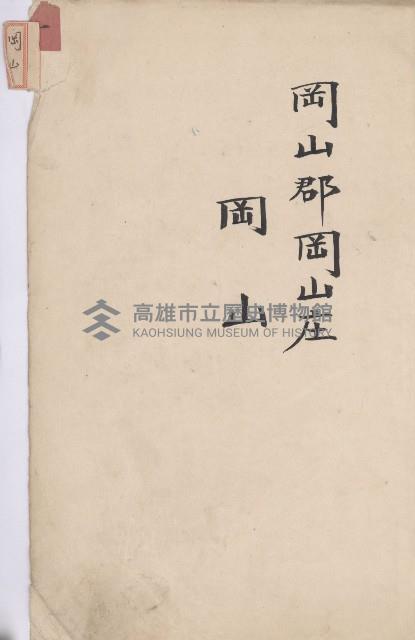 岡山郡岡山庄
岡山
岡山
一
高雄市立歷史博物館
KAOHSIUNG MUSEUM OF HISTORY